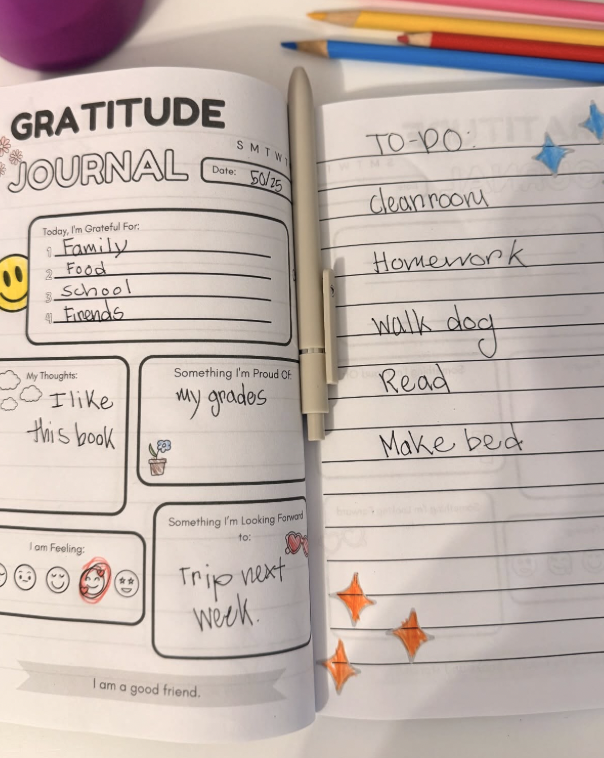 GRATITUDE
JOURNAL
S M T W T
Date: 50/25
Today, I'm Grateful For:
1 Family
2 Food
3 School
4 Firends
My Thoughts:
I like
this book
Something I'm Proud Of:
My grades
I am Feeling:
Something I'm Looking Forward
to:
Trip next
week.
I am a good friend.
TO-DO:
cleanroom
Homework
walk dog
Read
Make bed